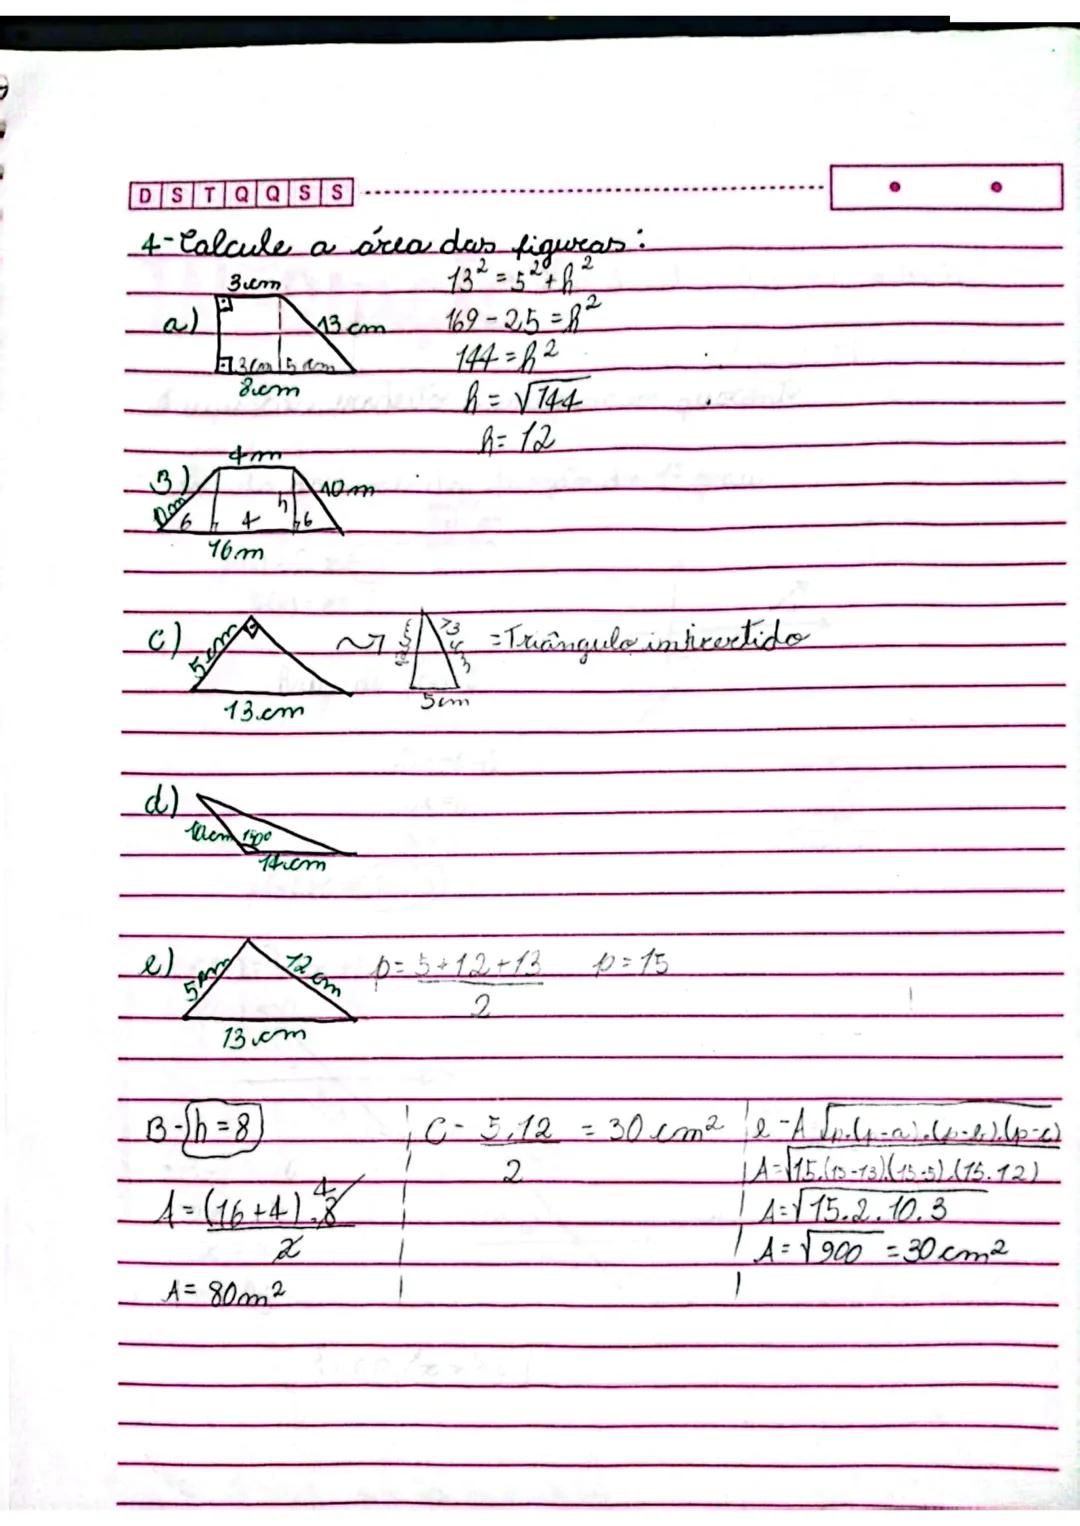 D S T Q Q S S
4-Calcule a área das figuras:
a)
3cm
13 cm
3cm 5cm
8cm
13² = 5² + h²
169 - 25 = h²
144 = h²
h = √144
h = 12
B)
4m
10m
10m
6 4 h 6
16m
c)
5cm
13cm
13cm
5cm
= Triângulo invertido
d)
10cm
150°
14cm
e)
5cm
12cm
13cm
p = 5+12+13
2
p = 15
B - h = 8
A = (16+4).8 4
2
A = 80m²
C - 5.12 = 30cm²
2
e - A √p.(p-a).(p-b).(p-c)
A = √15.(15-13).(15-5).(15.12)
A = √15.2.10.3
A = √900 = 30cm²